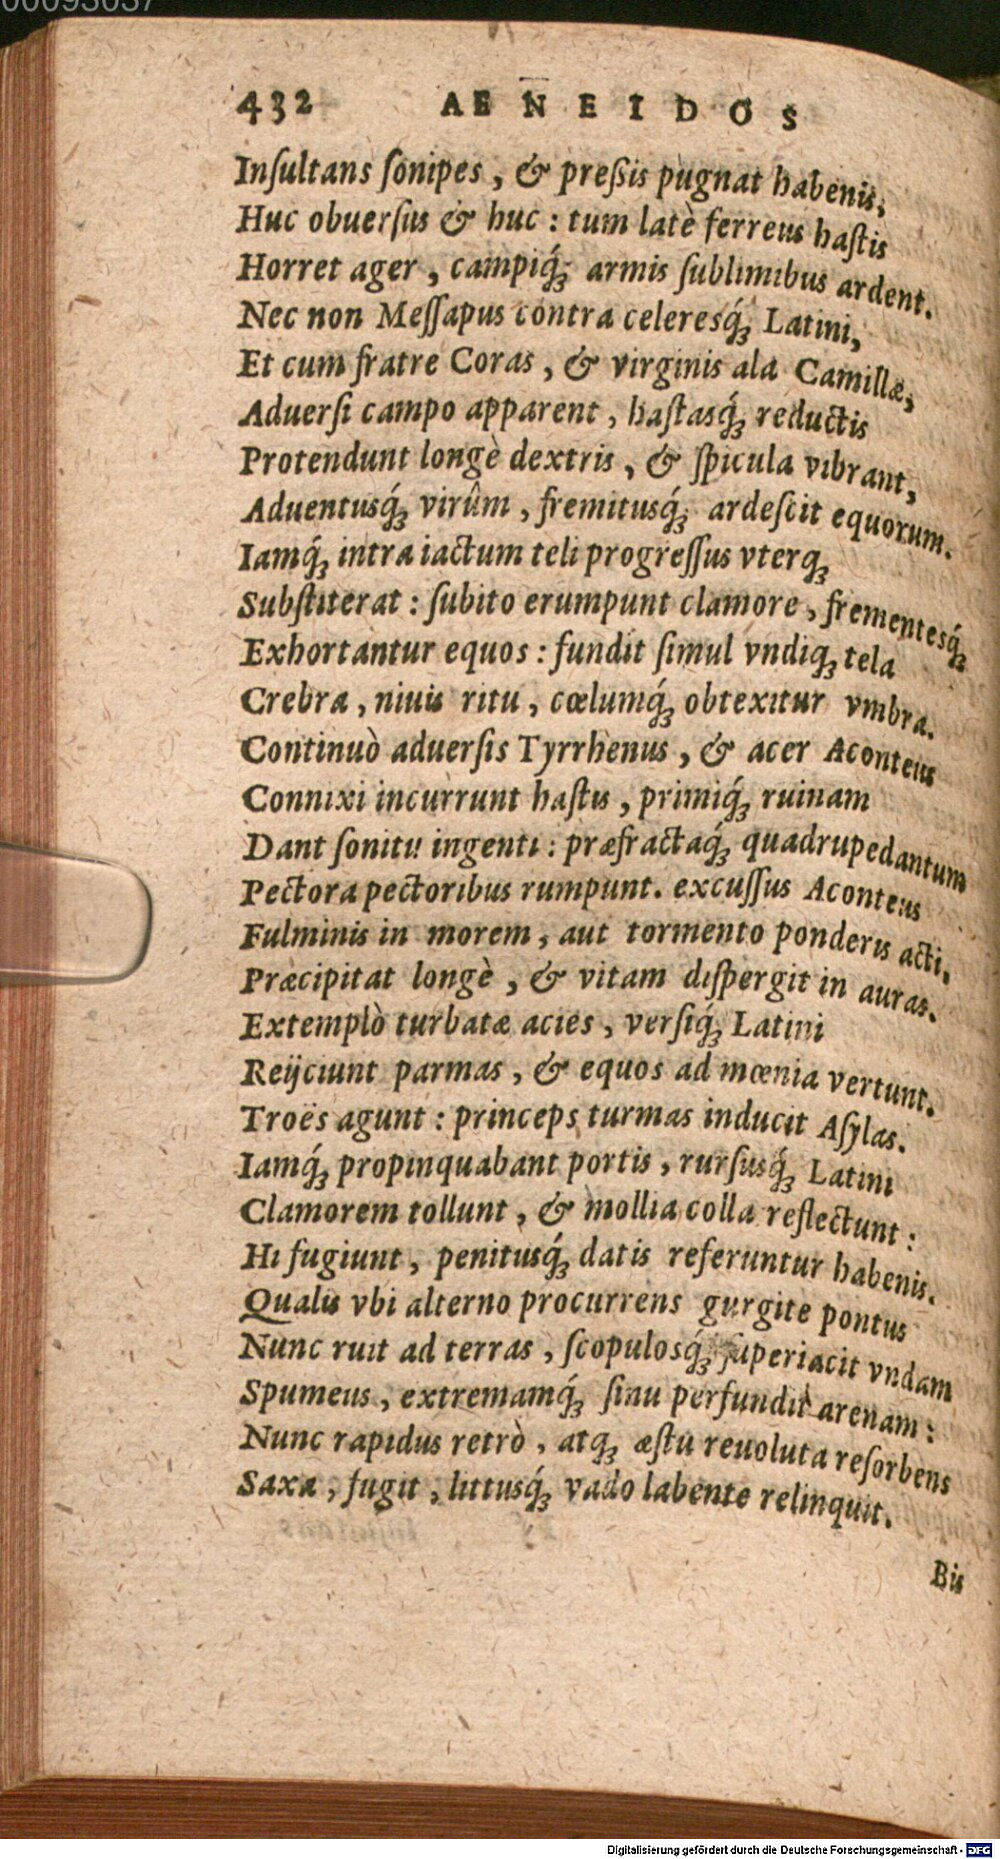 00093037
432 AENEIDOS
Inſultans ſonipes, & preßis pugnat habenis,
Huc obuerſus & huc: tum latè ferreus haſtis
Horret ager, campiq́; armis ſublimibus ardent.
Nec non Meſſapus contra celeresq́; Latini,
Et cum fratre Coras, & virginis ala Camillæ,
Aduerſi campo apparent, haſtasq́; reductis
Protendunt longè dextris, & ſpicula vibrant,
Aduentusq́; virûm, fremitusq́; ardeſcit equorum.
Iamq́; intra iactum teli progreſſus vterq;
Subſtiterat: ſubito erumpunt clamore, frementesq́;
Exhortantur equos: fundit ſimul vndiq; tela
Crebra, niuis ritu, cœlumq́; obtexitur vmbra.
Continuò aduerſis Tyrrhenus, & acer Aconteus
Connixi incurrunt haſtis, primiq́; ruinam
Dant ſonitu ingenti: præfractaq́; quadrupedantum
Pectora pectoribus rumpunt. excuſſus Aconteus
Fulminis in morem, aut tormento ponderis acti,
Præcipitat longè, & vitam diſpergit in auras.
Extemplò turbatæ acies, verſiq́; Latini
Reijciunt parmas, & equos ad mœnia vertunt.
Troës agunt: princeps turmas inducit Aſylas.
Iamq́; propinquabant portis, rurſusq́; Latini
Clamorem tollunt, & mollia colla reflectunt:
Hi fugiunt, penitusq́; datis referuntur habenis.
Qualis vbi alterno procurrens gurgite pontus
Nunc ruit ad terras, ſcopulosq́; ſuperiacit vndam
Spumeus, extremamq́; ſinu perfundit arenam:
Nunc rapidus retrò, atq; æſtu reuoluta reſorbens
Saxa, fugit, littusq́; vado labente relinquit.
Bis
Digitalisierung gefördert durch die Deutsche Forschungsgemeinschaft - DFG